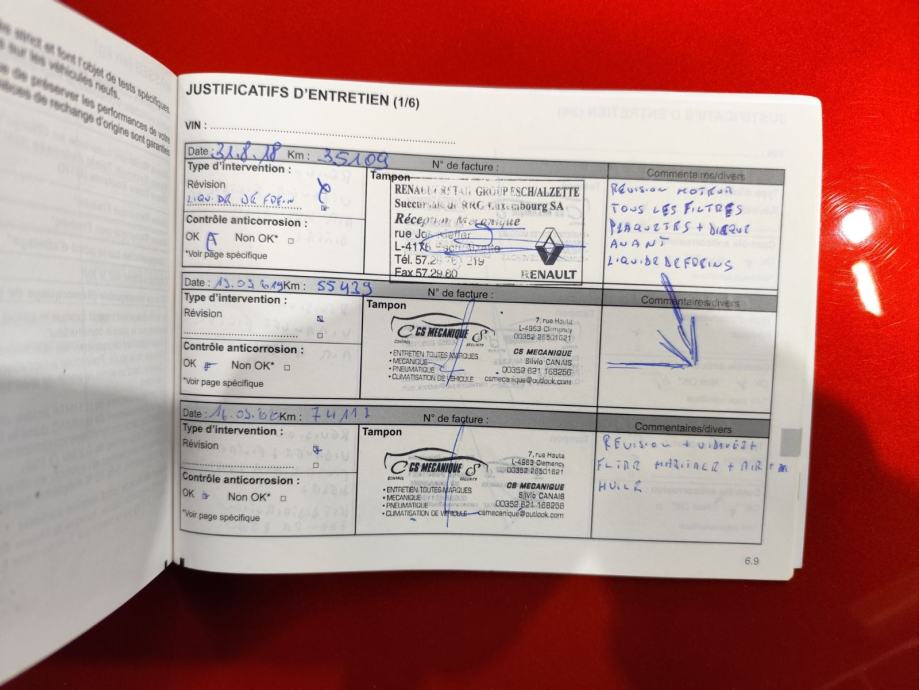 strict et font l'objet de tests spécifiques
sur les véhicules neufs.
de préserver les performances de votre
de rechange d'origine sont garanties
JUSTIFICATIFS D'ENTRETIEN (1/6)
VIN :
Date : 31.8.18 Km : 35109 N° de facture :
Type d'intervention :
Révision
LIQUIDE DE FREIN
Contrôle anticorrosion :
OK Non OK*
*Voir page spécifique
Tampon
RENAULT RETAIL GROUP ESCH/ALZETTE
Succursale de RRG Luxembourg SA
Réception Mécanique
rue Jos Kieffer
L-4176 Esch/Alzette
Tél. 57.29 219
Fax 57.29.60
RENAULT
Commentaires/divers
REVISION MOTEUR
TOUS LES FILTRES
PLAQUETTES + DISQUE
AVANT
LIQUIDE DE FREINS
Date : Km : 55439 N° de facture :
Type d'intervention :
Révision
Contrôle anticorrosion :
OK Non OK*
*Voir page spécifique
Tampon
CS MECANIQUE
CONTROL SECURITY
• ENTRETIEN TOUTES MARQUES
• MECANIQUE
• PNEUMATIQUE
• CLIMATISATION DE VÉHICULE
7, rue Haute
L-4963 Clemency
00352 26501621
CS MECANIQUE
Silvio CANAIS
00352 621 168256
csmecanique@outlook.com
Commentaires/divers
Date : Km : 74117 N° de facture :
Type d'intervention :
Révision
Contrôle anticorrosion :
OK Non OK*
*Voir page spécifique
Tampon
CS MECANIQUE
CONTROL SECURITY
• ENTRETIEN TOUTES MARQUES
• MECANIQUE
• PNEUMATIQUE
• CLIMATISATION DE VÉHICULE
7, rue Haute
L-4963 Clemency
00352 26501621
CS MECANIQUE
Silvio CANAIS
00352 621 168256
csmecanique@outlook.com
Commentaires/divers
REVISION +
+ AIR +
HUILE
6.9